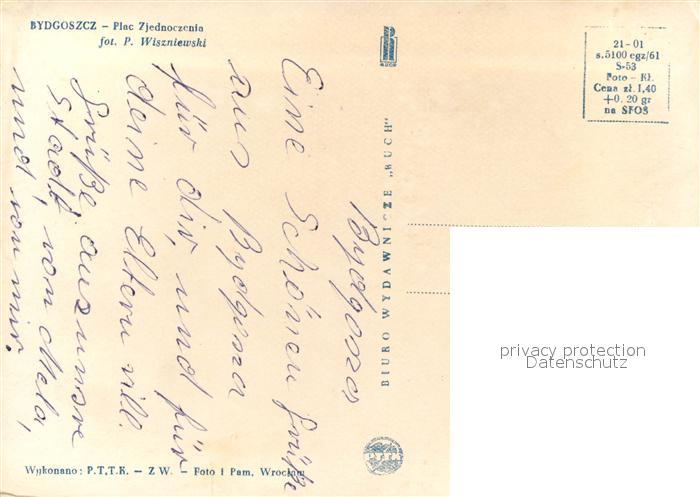 BYDGOSZCZ – Plac Zjednoczenia
fot. P. Wiszniewski
RUCH
21-01
s.5100 egz/61
S-53
Foto - Kł.
Cena zł. 1,40
+0.20 gr
na SFOS
BIURO WYDAWNICZE „RUCH"
Bydgoscz
Eine Schönen Grüße
aus Bydgoscz
für dir, und für
deine Eltern vill.
Grüße aus unsre
Stadt, von Mela,
und von mir.
Wykonano: P.T.T.K. – Z W. – Foto i Pam. Wrocław
privacy protection
Datenschutz